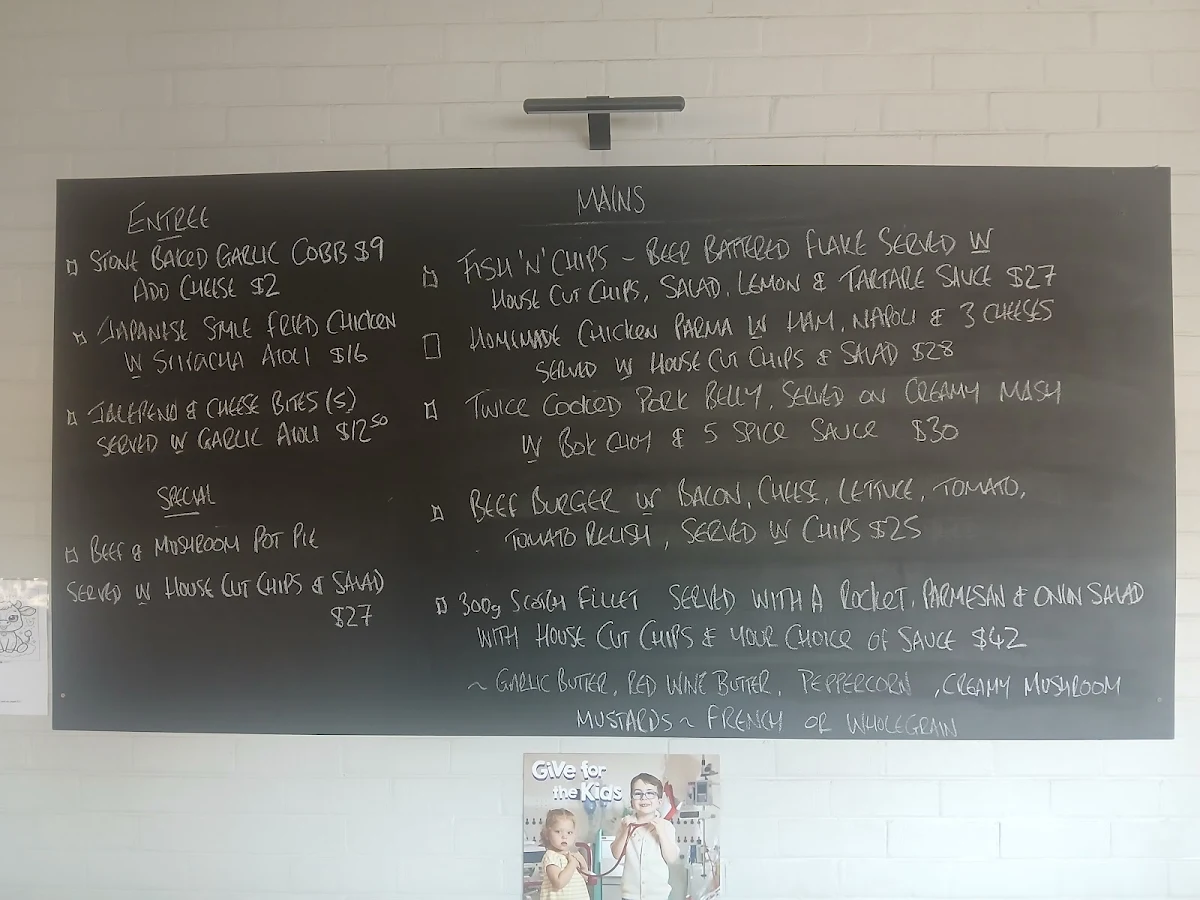 ENTREE
STONE BAKED GARLIC COBB $9
ADD CHEESE $2
JAPANESE STYLE FRIED CHICKEN
W SRIRACHA AIOLI $16
JALEPENO & CHEESE BITES (5)
SERVED W GARLIC AIOLI $12.50
SPECIAL
BEEF & MUSHROOM POT PIE
SERVED W HOUSE CUT CHIPS & SALAD
$27
MAINS
FISH 'N' CHIPS ~ BEER BATTERED FLAKE SERVED W
HOUSE CUT CHIPS, SALAD, LEMON & TARTARE SAUCE $27
HOMEMADE CHICKEN PARMA W HAM, NAPOLI & 3 CHEESES
SERVED W HOUSE CUT CHIPS & SALAD $28
TWICE COOKED PORK BELLY, SERVED ON CREAMY MASH
W BOK CHOY & 5 SPICE SAUCE $30
BEEF BURGER W BACON, CHEESE, LETTUCE, TOMATO,
TOMATO RELISH, SERVED W CHIPS $25
300g SCOTCH FILLET SERVED WITH A ROCKET, PARMESAN & ONION SALAD
WITH HOUSE CUT CHIPS & YOUR CHOICE OF SAUCE $42
~ GARLIC BUTTER, RED WINE BUTTER, PEPPERCORN, CREAMY MUSHROOM
MUSTARDS ~ FRENCH OR WHOLEGRAIN
GiVe for
the Kids